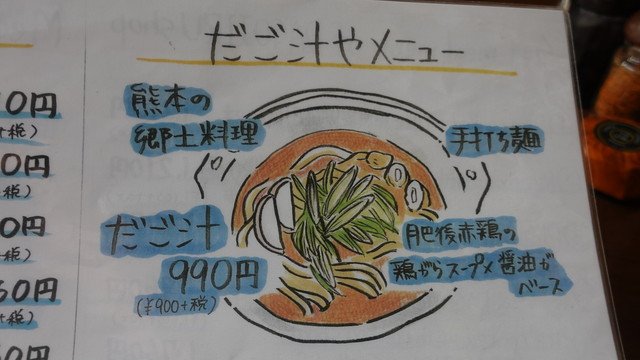 だご汁やメニュー
熊本の
郷土料理
手打ち麺
だご汁
990円
(¥900+税)
肥後赤鶏の
鶏がらスープ×醤油が
ベース
0円
+税)
0円
税)
0円
税)
50円
+税)
50円